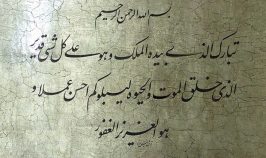 بسم الله الرحمن الرحیم
تبارک الذی بیده الملک و هو علی کل شئ قدیر
الذی خلق الموت و الحیوة لیبلوکم ایکم احسن عملا و
هو العزیز الغفور